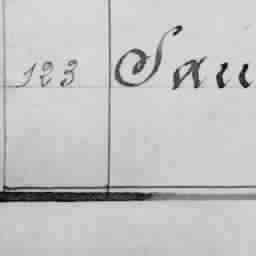 123 Sau